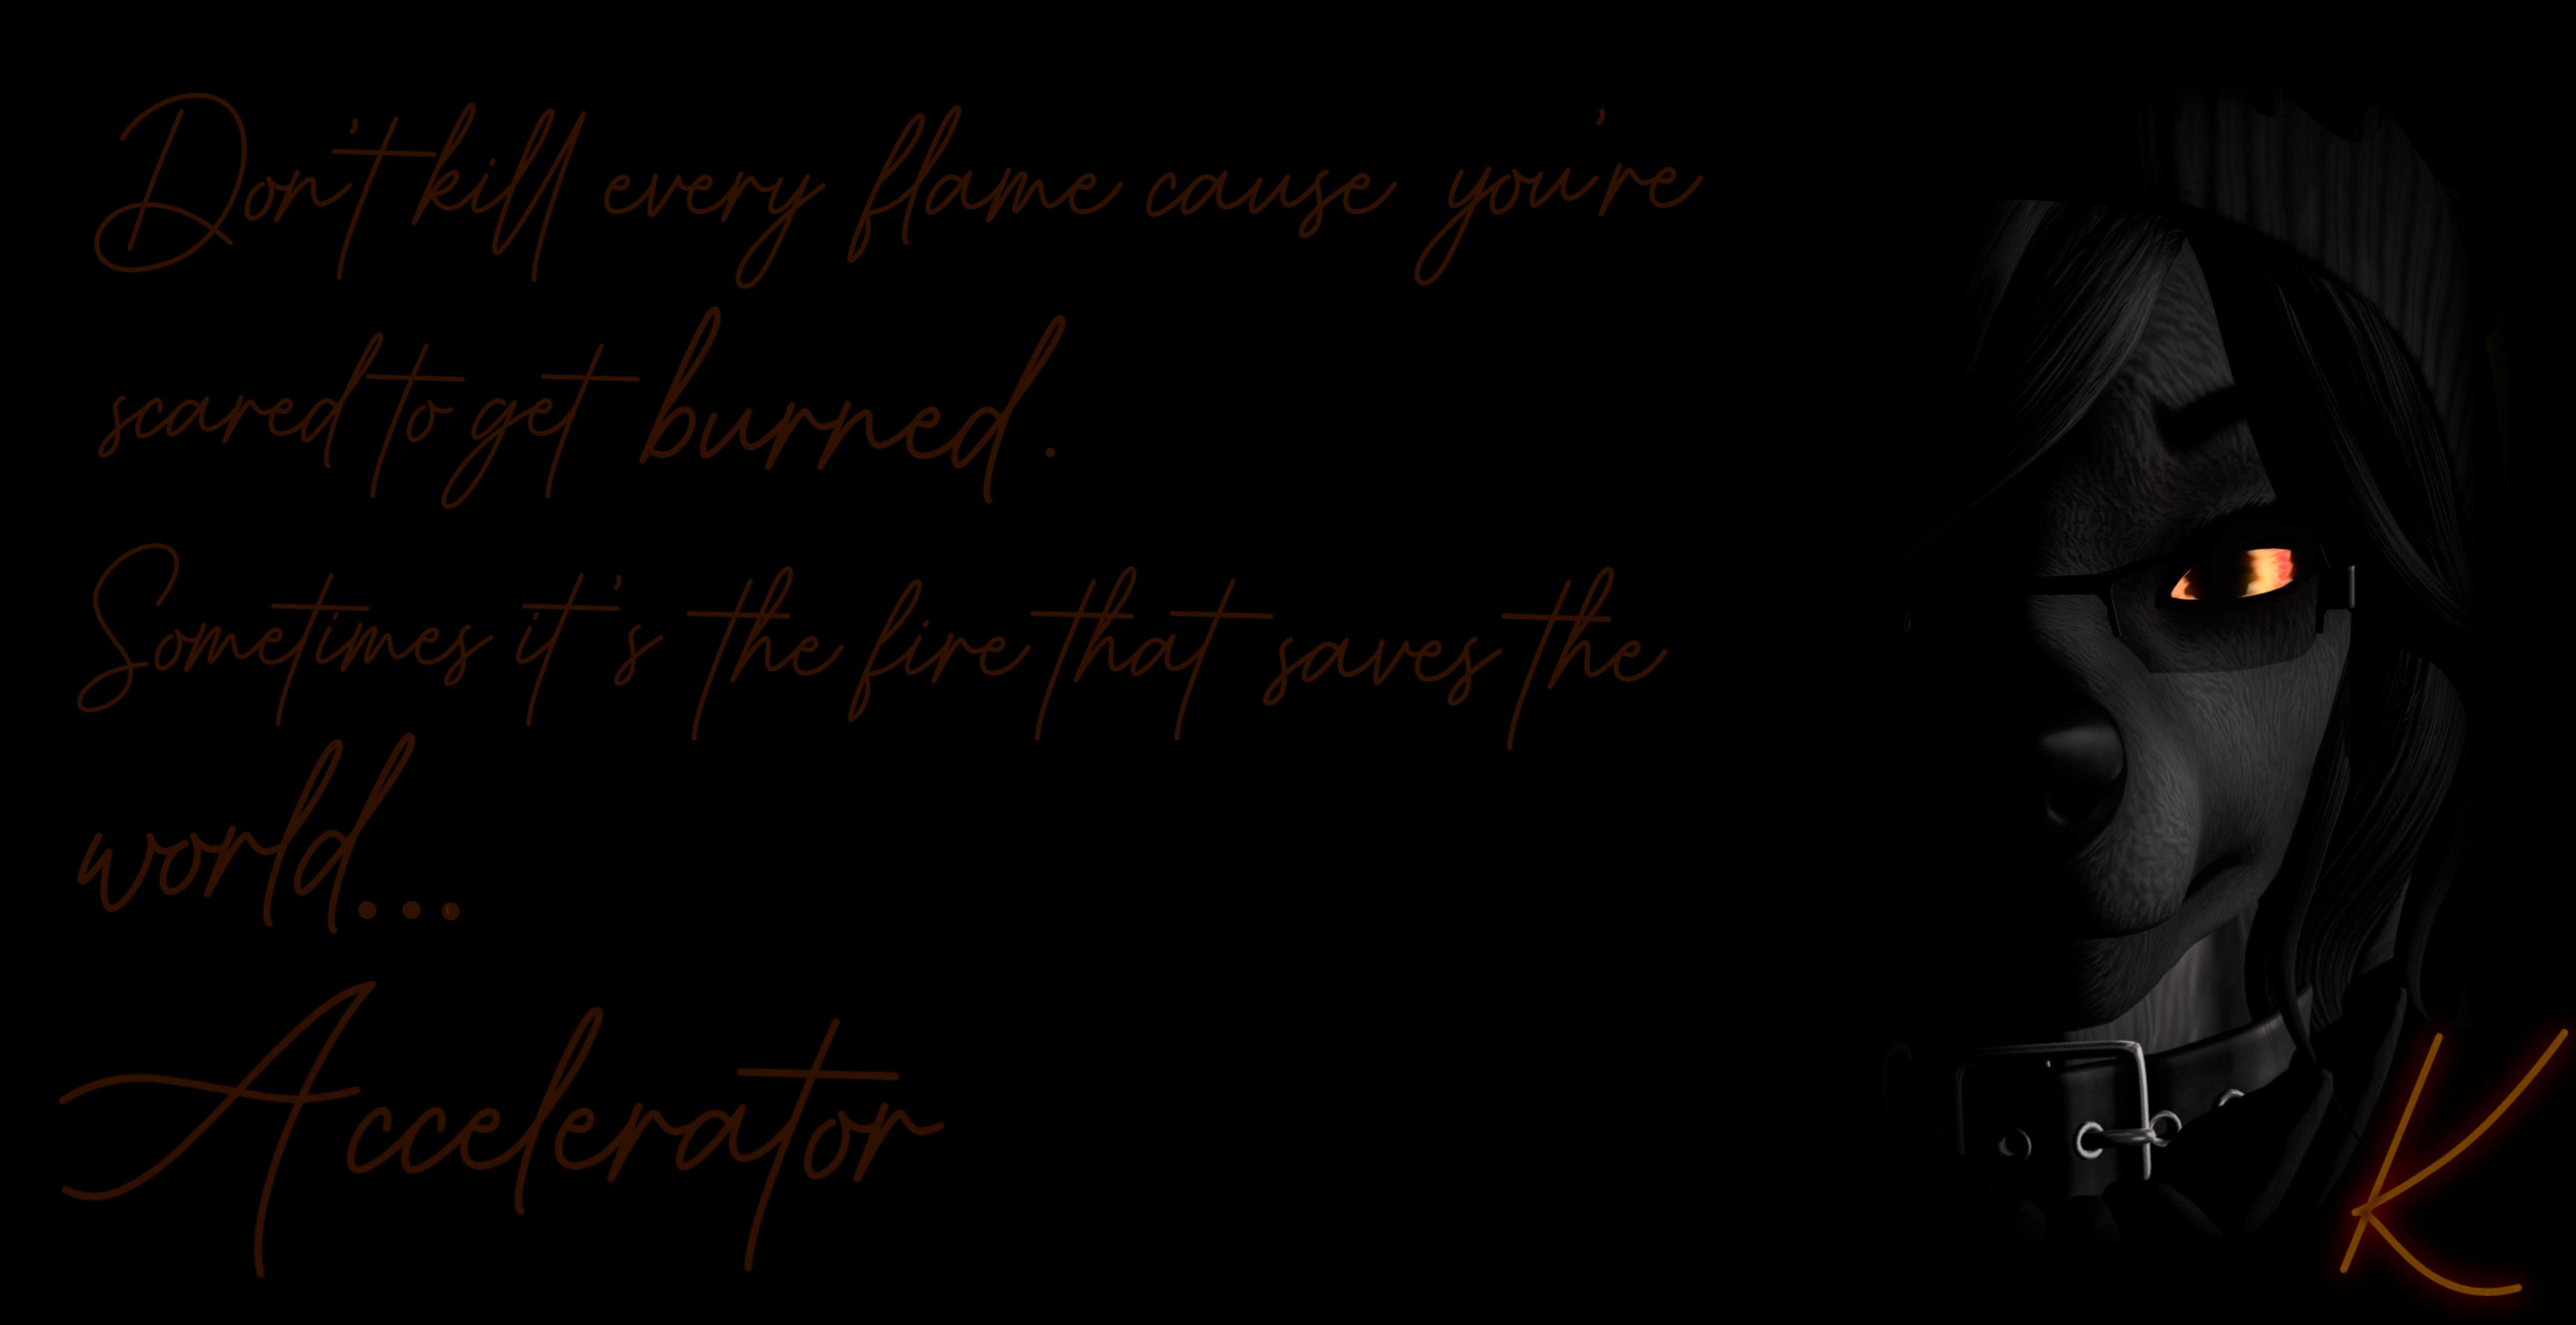 Don't kill every flame cause you're
scared to get burned.
Sometimes it's the fire that saves the
world...
Accelerator
K